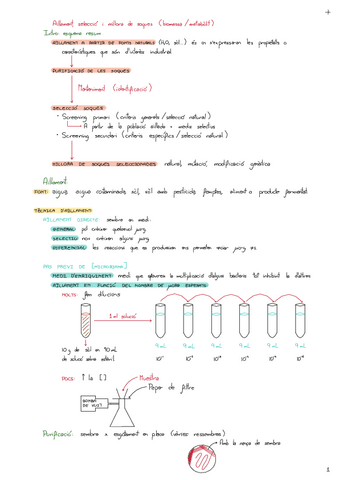 Aïllament, selecció i millora de soques (biomassa/metabòlit)
Intro: esquema resum
AÏLLAMENT A PARTIR DE FONTS NATURALS (H2O, sòl...) és on s'expressaran les propietats o
característiques que són d'interès industrial
PURIFICACIÓ DE LES SOQUES
Manteniment (identificació)
SELECCIÓ SOQUES
· Screening primari (criteris generals/selecció natural)
A partir de la població aïllada + medis selectius
· Screening secundari (criteris específics/selecció natural)
MILLORA DE SOQUES SELECCIONADES natural, mutació, modificació genètica
Aïllament:
FONT: aigua, aigua contaminada, sòl, sòl amb pesticida, femptes, aliment o producte fermentat
TÈCNICA D'AÏLLAMENT:
AÏLLAMENT DIRECTE: sembra en medi:
GENERAL: pot créixer qualsevol
SELECTIU: non creixen alguns
DIFERENCIAL: les reaccions que es produeixen ens permeten
PAS PREVI DE [MICROORGAN.]
MEDI D'ENRIQUIMENT: medi que afavoreix la multiplicació d'alguns bacteris tot inhibint la d'altres
AÏLLAMENT EN FUNCIÓ DEL NOMBRE DE ESPERATS
MOLTS: fem dilucions
1 ml solució
9 mL 9 mL 9 mL 9 mL 9 mL 9 mL
10 g de sòl en 90 mL
de solució salina estèril
POCS: ↑ la [ ]
Mostra
Paper de filtre
BOMBA
DE BUIT
Purificació: sembra x esgotament en placa (vàries ressembres)
Amb la nansa de sembra
1